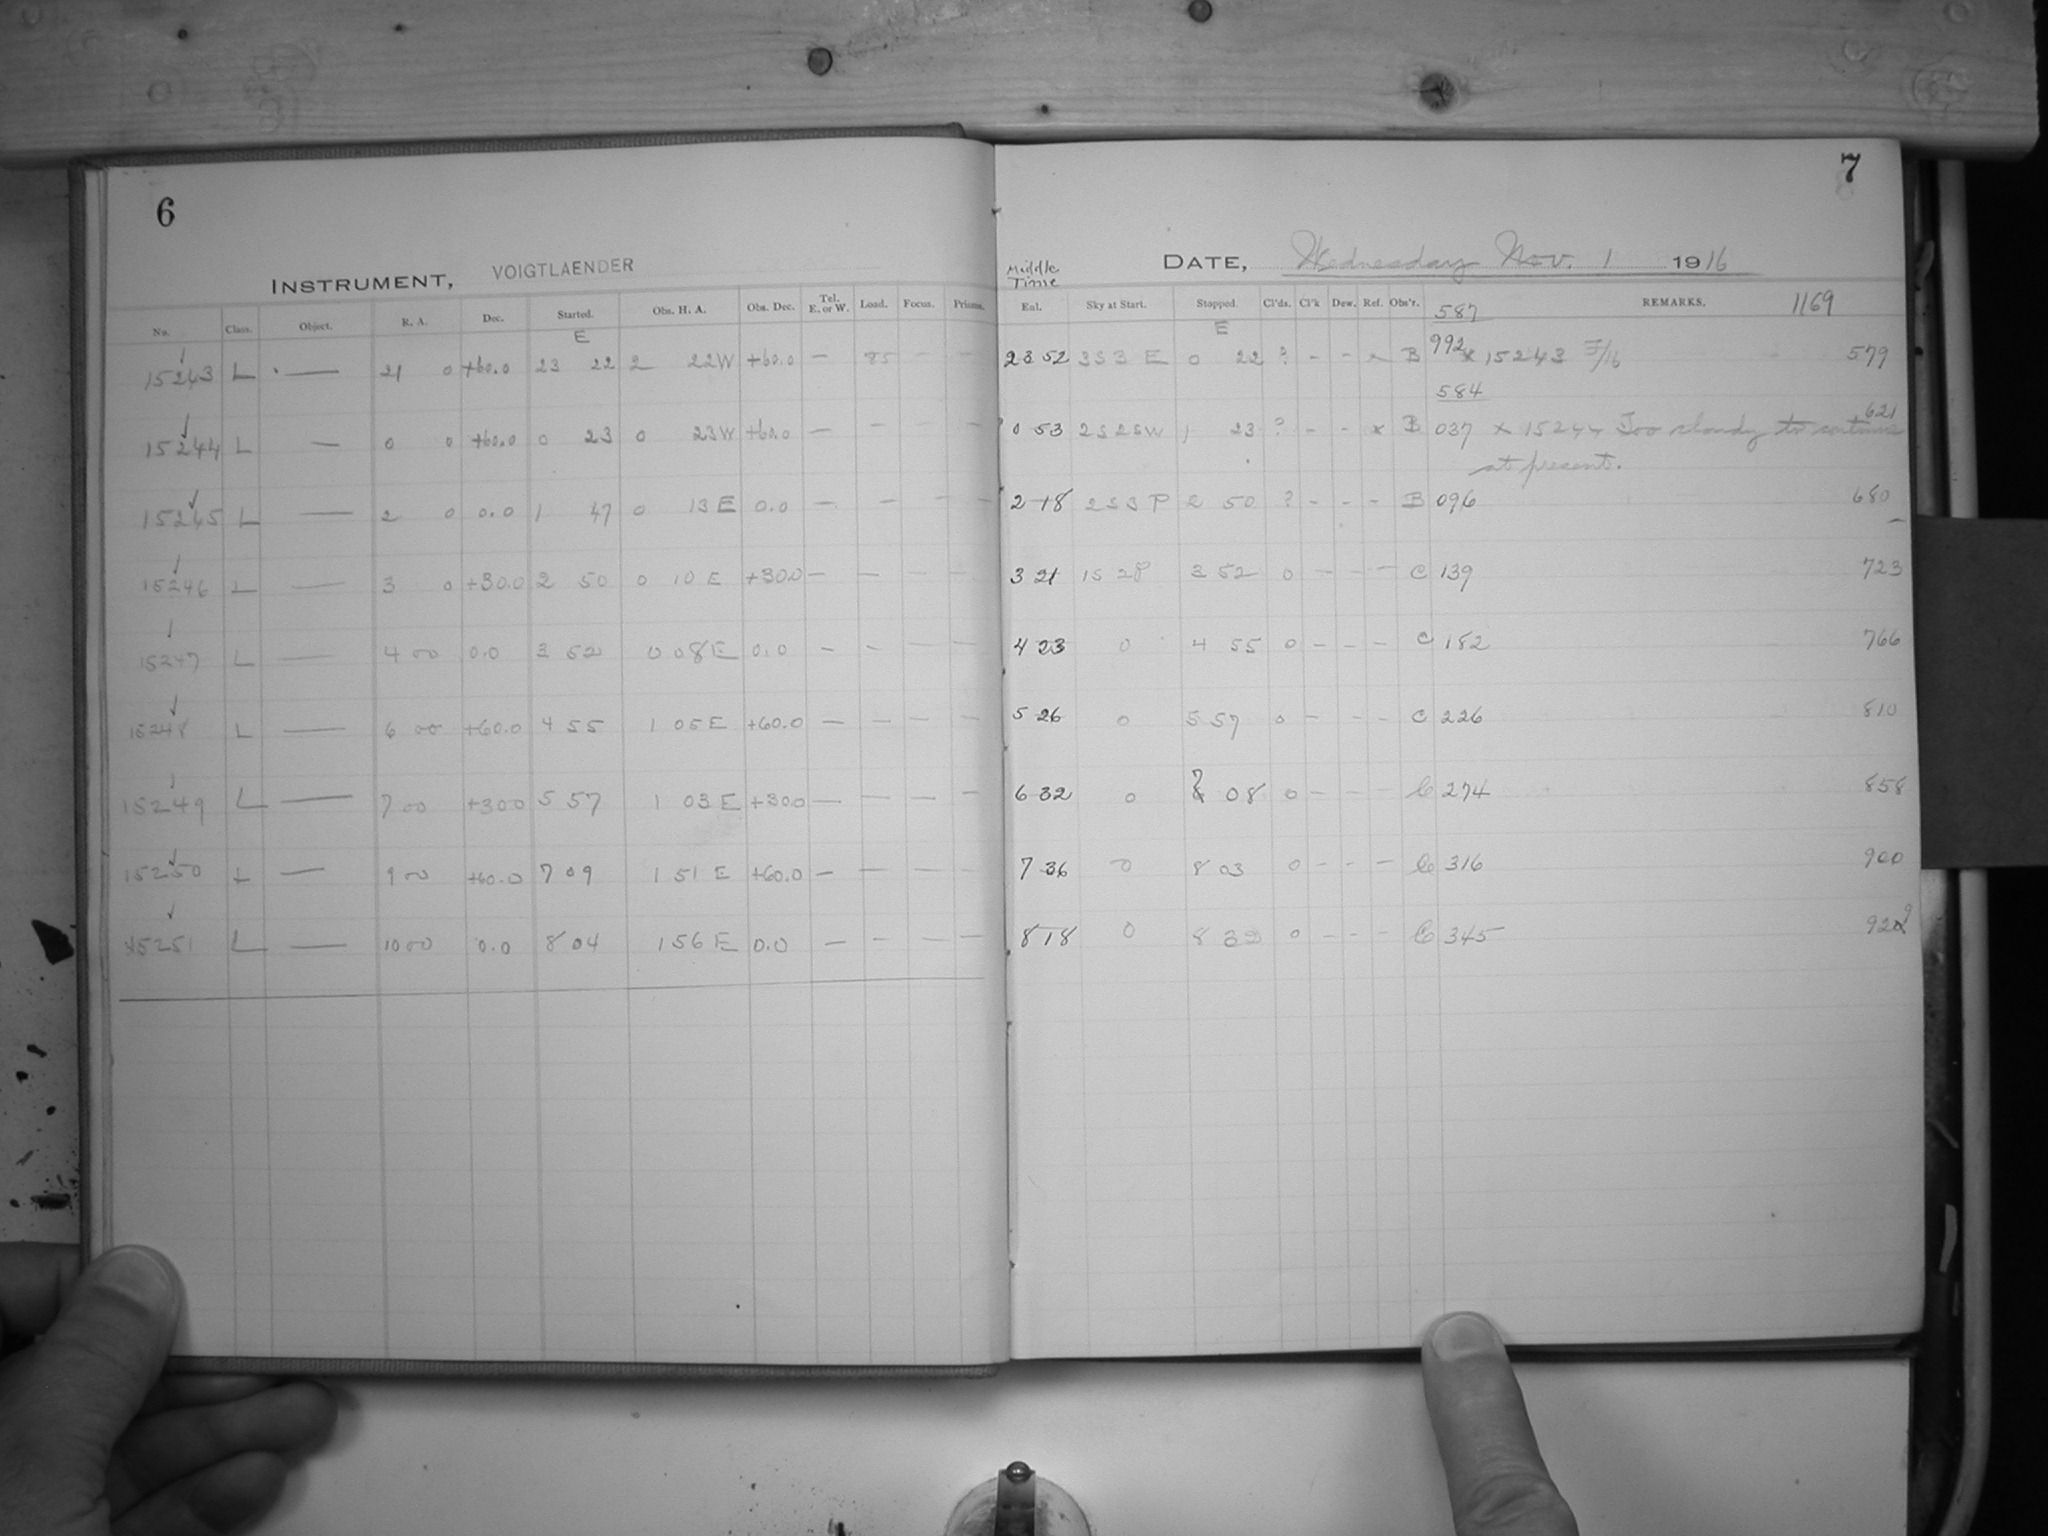 6
INSTRUMENT, VOIGTLAENDER
No. Class. Object. R. A. Dec. Started. Obs. H. A. Obs. Dec. Tel. E. or W. Load. Focus. Prisms.
E
15243 L — 21 0 +60.0 23 22 2 22W +60.0 — 85 — —
15244 L — 0 0 +60.0 0 23 0 23W +60.0 — — — —
15245 L — 2 0 0.0 1 47 0 13E 0.0 — — — —
15246 L — 3 0 +30.0 2 50 0 10E +30.0 — — — —
15247 L — 4 00 0.0 3 52 0 08E 0.0 — — — —
15248 L — 6 00 +60.0 4 55 1 05E +60.0 — — — —
15249 L — 7 00 +30.0 5 57 1 03E +30.0 — — — —
15250 L — 9 00 +60.0 7 09 1 51E +60.0 — — — —
15251 L — 10 00 0.0 8 04 1 56E 0.0 — — — —
7
DATE, Wednesday Nov. 1 1916
Middle
Time
Enl. Sky at Start. Stopped. Cl'ds. Cl'k Dew. Ref. Obs'r. REMARKS. 1169
E 587
23 52 3S3 E 0 22 ? - - x B 992 x 15243 579
584
0 53 2S2SW 1 23 ? - - x B 037 x 15244 Too cloudy to continue 621
at present.
2 18 2S3P 2 50 ? - - - B 096 680
3 21 1S2P 3 52 0 — — — C 139 723
4 23 0 4 55 0 - - - C 182 766
5 26 0 5 57 0 - - - C 226 810
6 32 0 7 08 0 - - - C 274 858
7 36 0 8 03 0 - - - C 316 900
8 18 0 8 32 0 - - - C 345 929